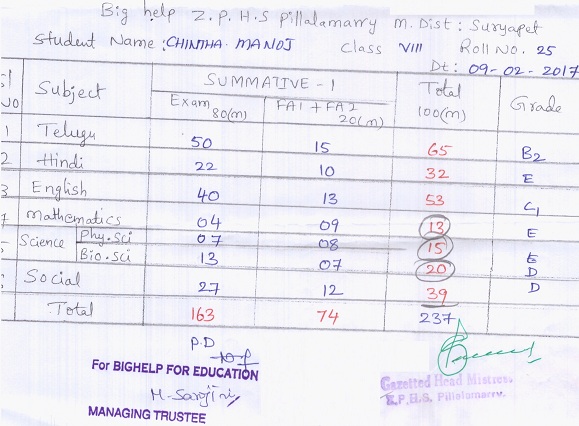 Big help Z.P.H.S Pillalamarry M. Dist : Suryapet
Student Name : CHINTHA. MANOJ Class VIII Roll No. 25
Dt: 09-02-2017
Sl No Subject SUMMATIVE - 1 Total 100(m) Grade
Exam 80(m) FA1 + FA2 20(m)
1 Telugu 50 15 65 B2
2 Hindi 22 10 32 E
3 English 40 13 53 C1
Mathematics 04 09 13 E
Science Phy.Sci 07 08 15 E
Bio.Sci 13 07 20 D
Social 27 12 39 D
Total 163 74 237
P.D
For BIGHELP FOR EDUCATION
M. Sarojini
MANAGING TRUSTEE
Gazetted Head Mistress
Z.P.H.S. Pillalamarry.